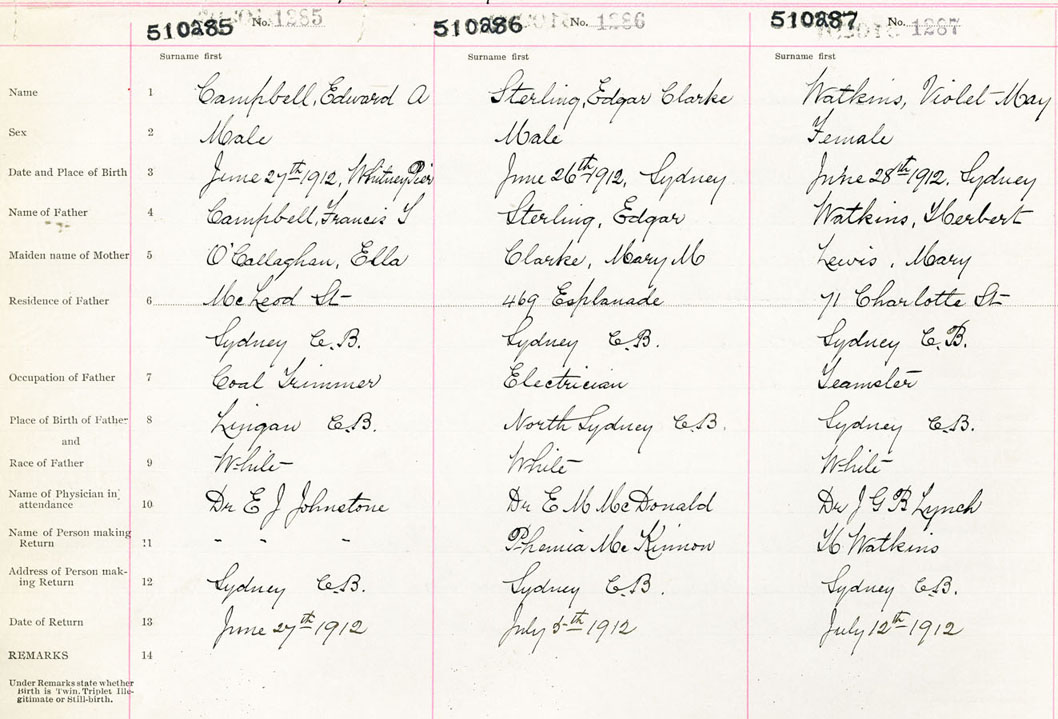 510285 No. 1285 510286 No. 1286 510287 No. 1287
Surname first Surname first Surname first
Name 1 Campbell, Edward A Sterling, Edgar Clarke Watkins, Violet May
Sex 2 Male Male Female
Date and Place of Birth 3 June 27th 1912, Whitney Pier June 26th 1912, Sydney June 28th 1912, Sydney
Name of Father 4 Campbell, Francis S Sterling, Edgar Watkins, Herbert
Maiden name of Mother 5 O'Callaghan, Ella Clarke, Mary M Lewis, Mary
Residence of Father 6 McLeod St 469 Esplanade 71 Charlotte St
Sydney C.B. Sydney C.B. Sydney C.B.
Occupation of Father 7 Coal Trimmer Electrician Teamster
Place of Birth of Father 8 Lingan C.B. North Sydney C.B. Sydney C.B.
and
Race of Father 9 White White White
Name of Physician in attendance 10 Dr E J Johnstone Dr E M McDonald Dr J G B Lynch
Name of Person making Return 11 " " " Phemia McKinnon H Watkins
Address of Person mak-
ing Return 12 Sydney C.B. Sydney C.B. Sydney C.B.
Date of Return 13 June 27th 1912 July 5th 1912 July 12th 1912
REMARKS 14
Under Remarks state whether
Birth is Twin, Triplet Ille-
gitimate or Still-birth.